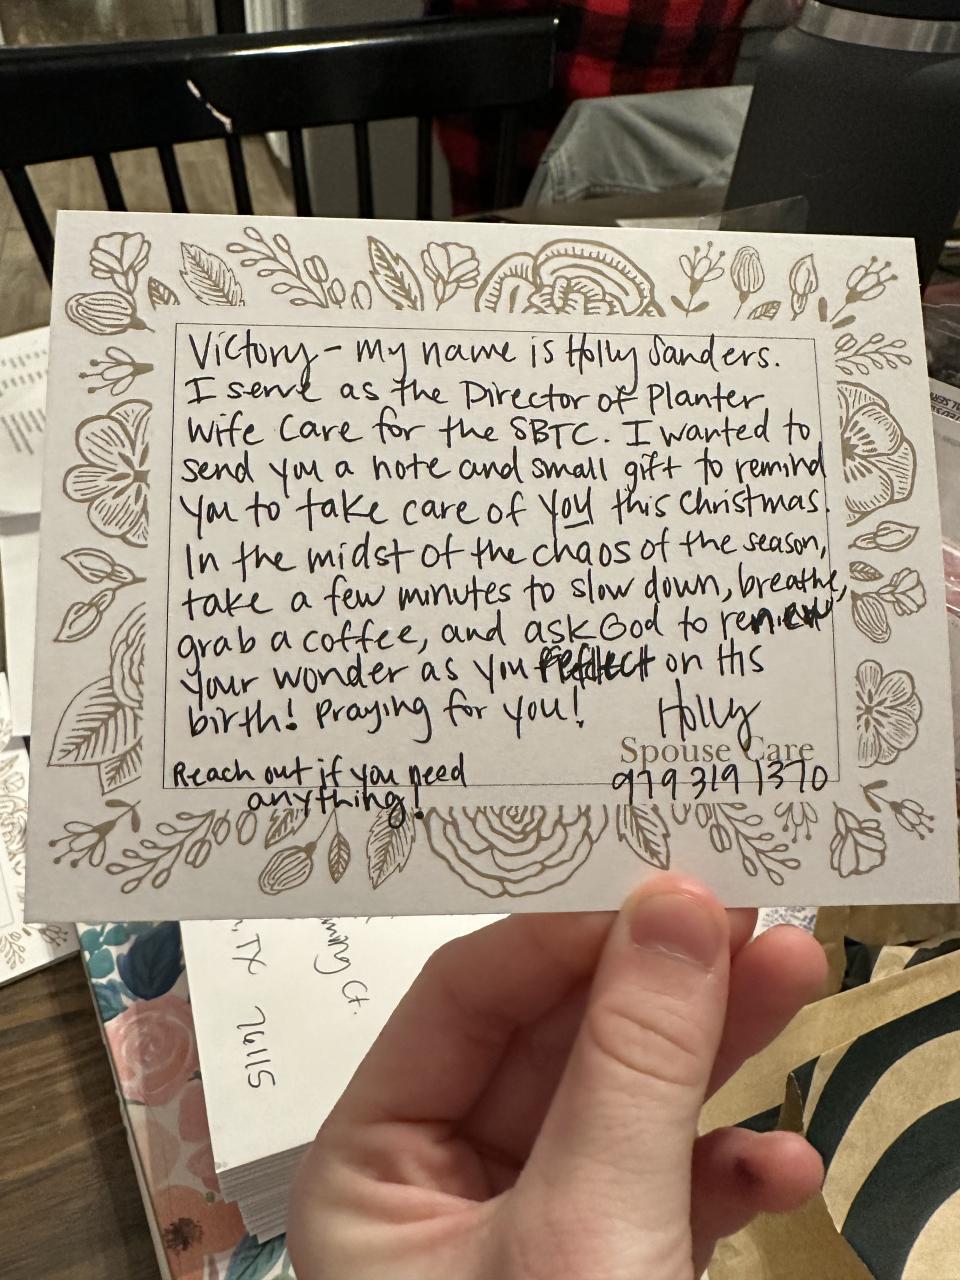 Victory – my name is Holly Sanders.
I serve as the Director of Planter
Wife Care for the SBTC. I wanted to
send you a note and small gift to remind
you to take care of you this Christmas.
In the midst of the chaos of the season,
take a few minutes to slow down, breathe,
grab a coffee, and ask God to renew
your wonder as you reflect on His
birth! Praying for you!
Holly
Spouse Care
Reach out if you need
anything!
979 319 1370
Ct.
, TX 76115